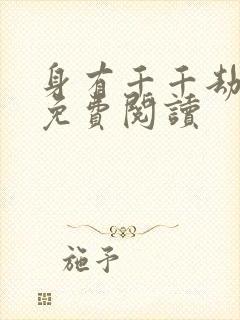 身有千千劫
免費閱讀
施予